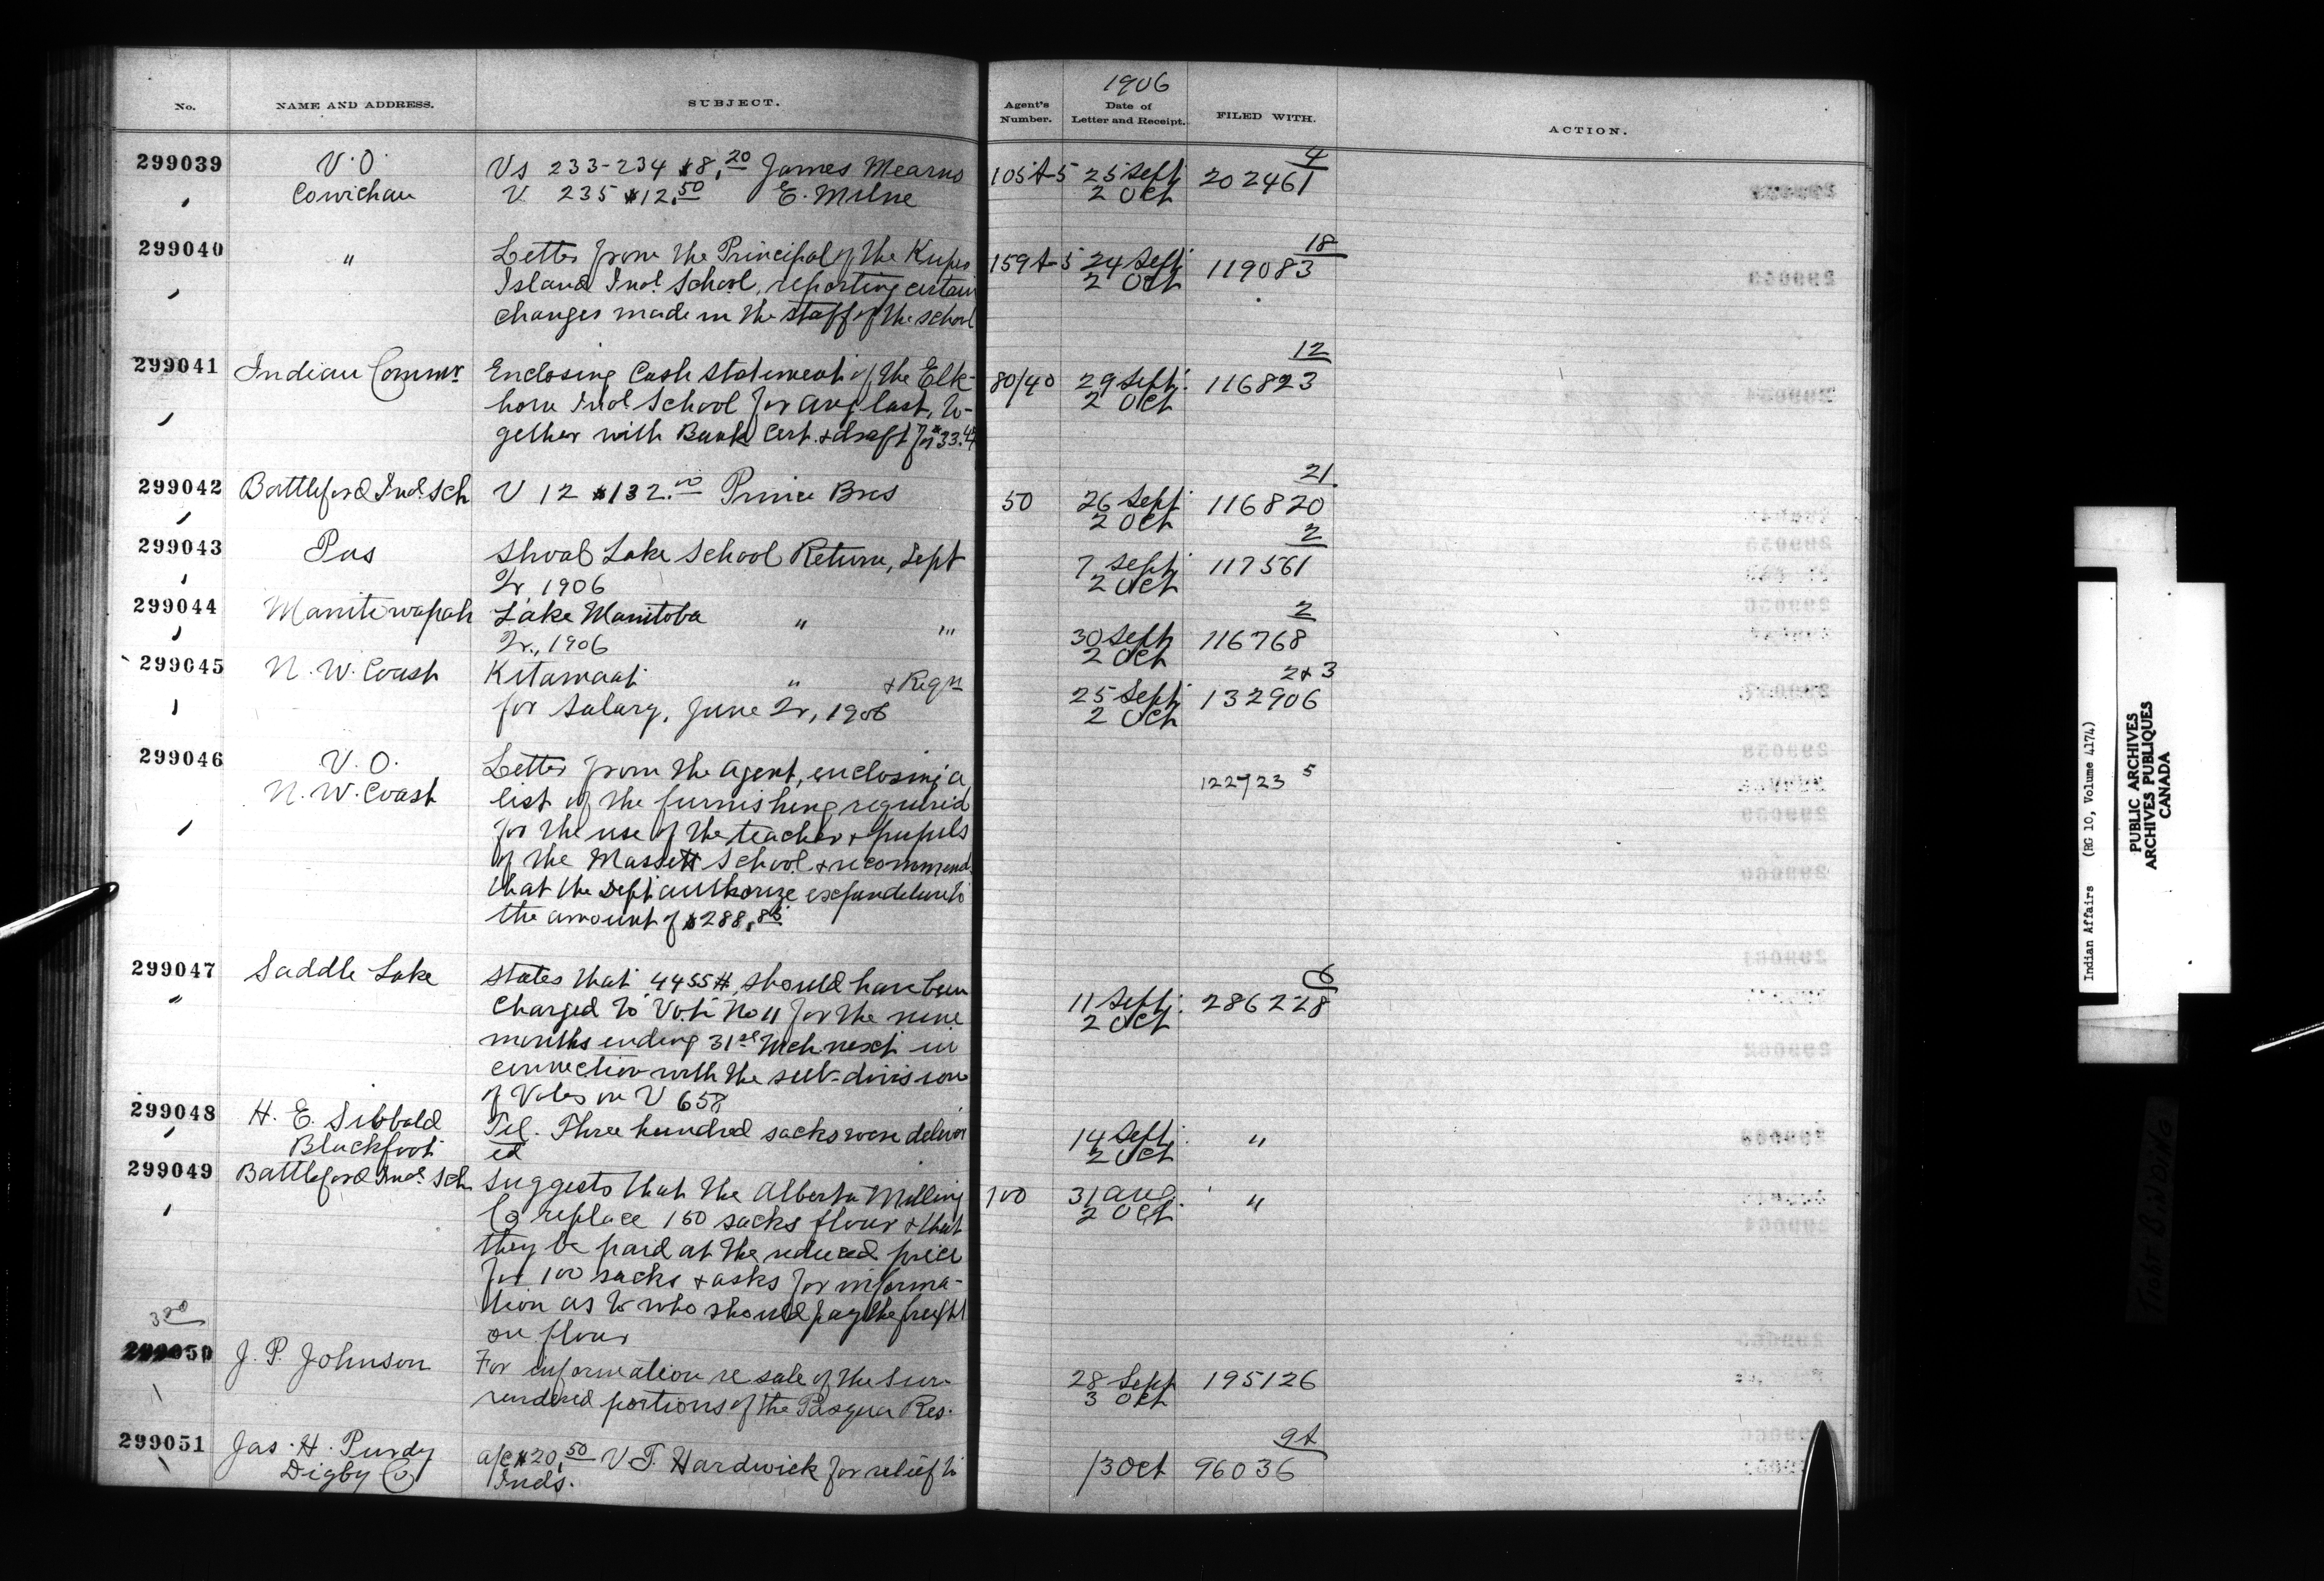 1906
No. NAME AND ADDRESS. SUBJECT. Agent's Number. Date of Letter and Receipt. FILED WITH. ACTION.
299039 V.O. Vs 233-234 $8.20 James Mearns 105A-5 25 Sept 202461 4
Cowichan V 235 $12.50 E. Milne 2 Oct
299040 " Letter from the Principal of the Kuper 159A-5 24 Sept 119083 18
Island Ind. School, reporting certain 2 Oct
changes made in the staff of the school
299041 Indian Commr. Enclosing Cash Statement of the Elk- 80/40 29 Sept. 116823 12
horn Ind School for Aug last, to- 2 Oct
gether with Bank Cert. & draft for $33.
299042 Battleford Ind. Sch V 12 $132.00 Prince Bros 50 26 Sept 116820 21
2 Oct
299043 Pas Shoal Lake School Return, Sept 7 Sept 117561 2
Qr, 1906 2 Oct
299044 Manitowapah Lake Manitoba " " 30 Sept 116768 2
Qr., 1906 2 Oct
299045 N. W. Coast Kitamaat " & Reqn 25 Sept 132906 2 & 3
for Salary, June Qr, 1906 2 Oct
299046 V. O. Letter from the Agent, enclosing a 122723 5
N. W. Coast list of the furnishing required
for the use of the teacher & pupils
of the Massett School & recommend
that the Dept authorize expenditure to
the amount of $288.85
299047 Saddle Lake States that 4455# should have been 11 Sept. 286228 6
" charged to Vote No 11 for the nine 2 Oct
months ending 31st Mch next in
connection with the sub-division
of Votes on V 658
299048 H. E. Sibbald Tel. Three hundred sacks were deliver 14 Sept. "
Blackfoot ed 2 Oct
299049 Battleford Ind. Sch Suggests that the Alberta Milling 100 31 Aug. "
Co replace 150 sacks flour & that 2 Oct
they be paid at the reduced price
for 100 sacks & asks for informa-
tion as to who should pay the freight
on flour
3rd
299050 J. P. Johnson For information re sale of the Sur- 28 Sept 195126
rendered portions of the Pasqua Res. 3 Oct
299051 Jas. H. Purdy a/c $20.50 V T. Hardwick for relief to 1/3 Oct 96036 9A
Digby Co Inds.
Indian Affairs (RG 10, Volume 4174)
PUBLIC ARCHIVES
ARCHIVES PUBLIQUES
CANADA
TIGHT BINDING